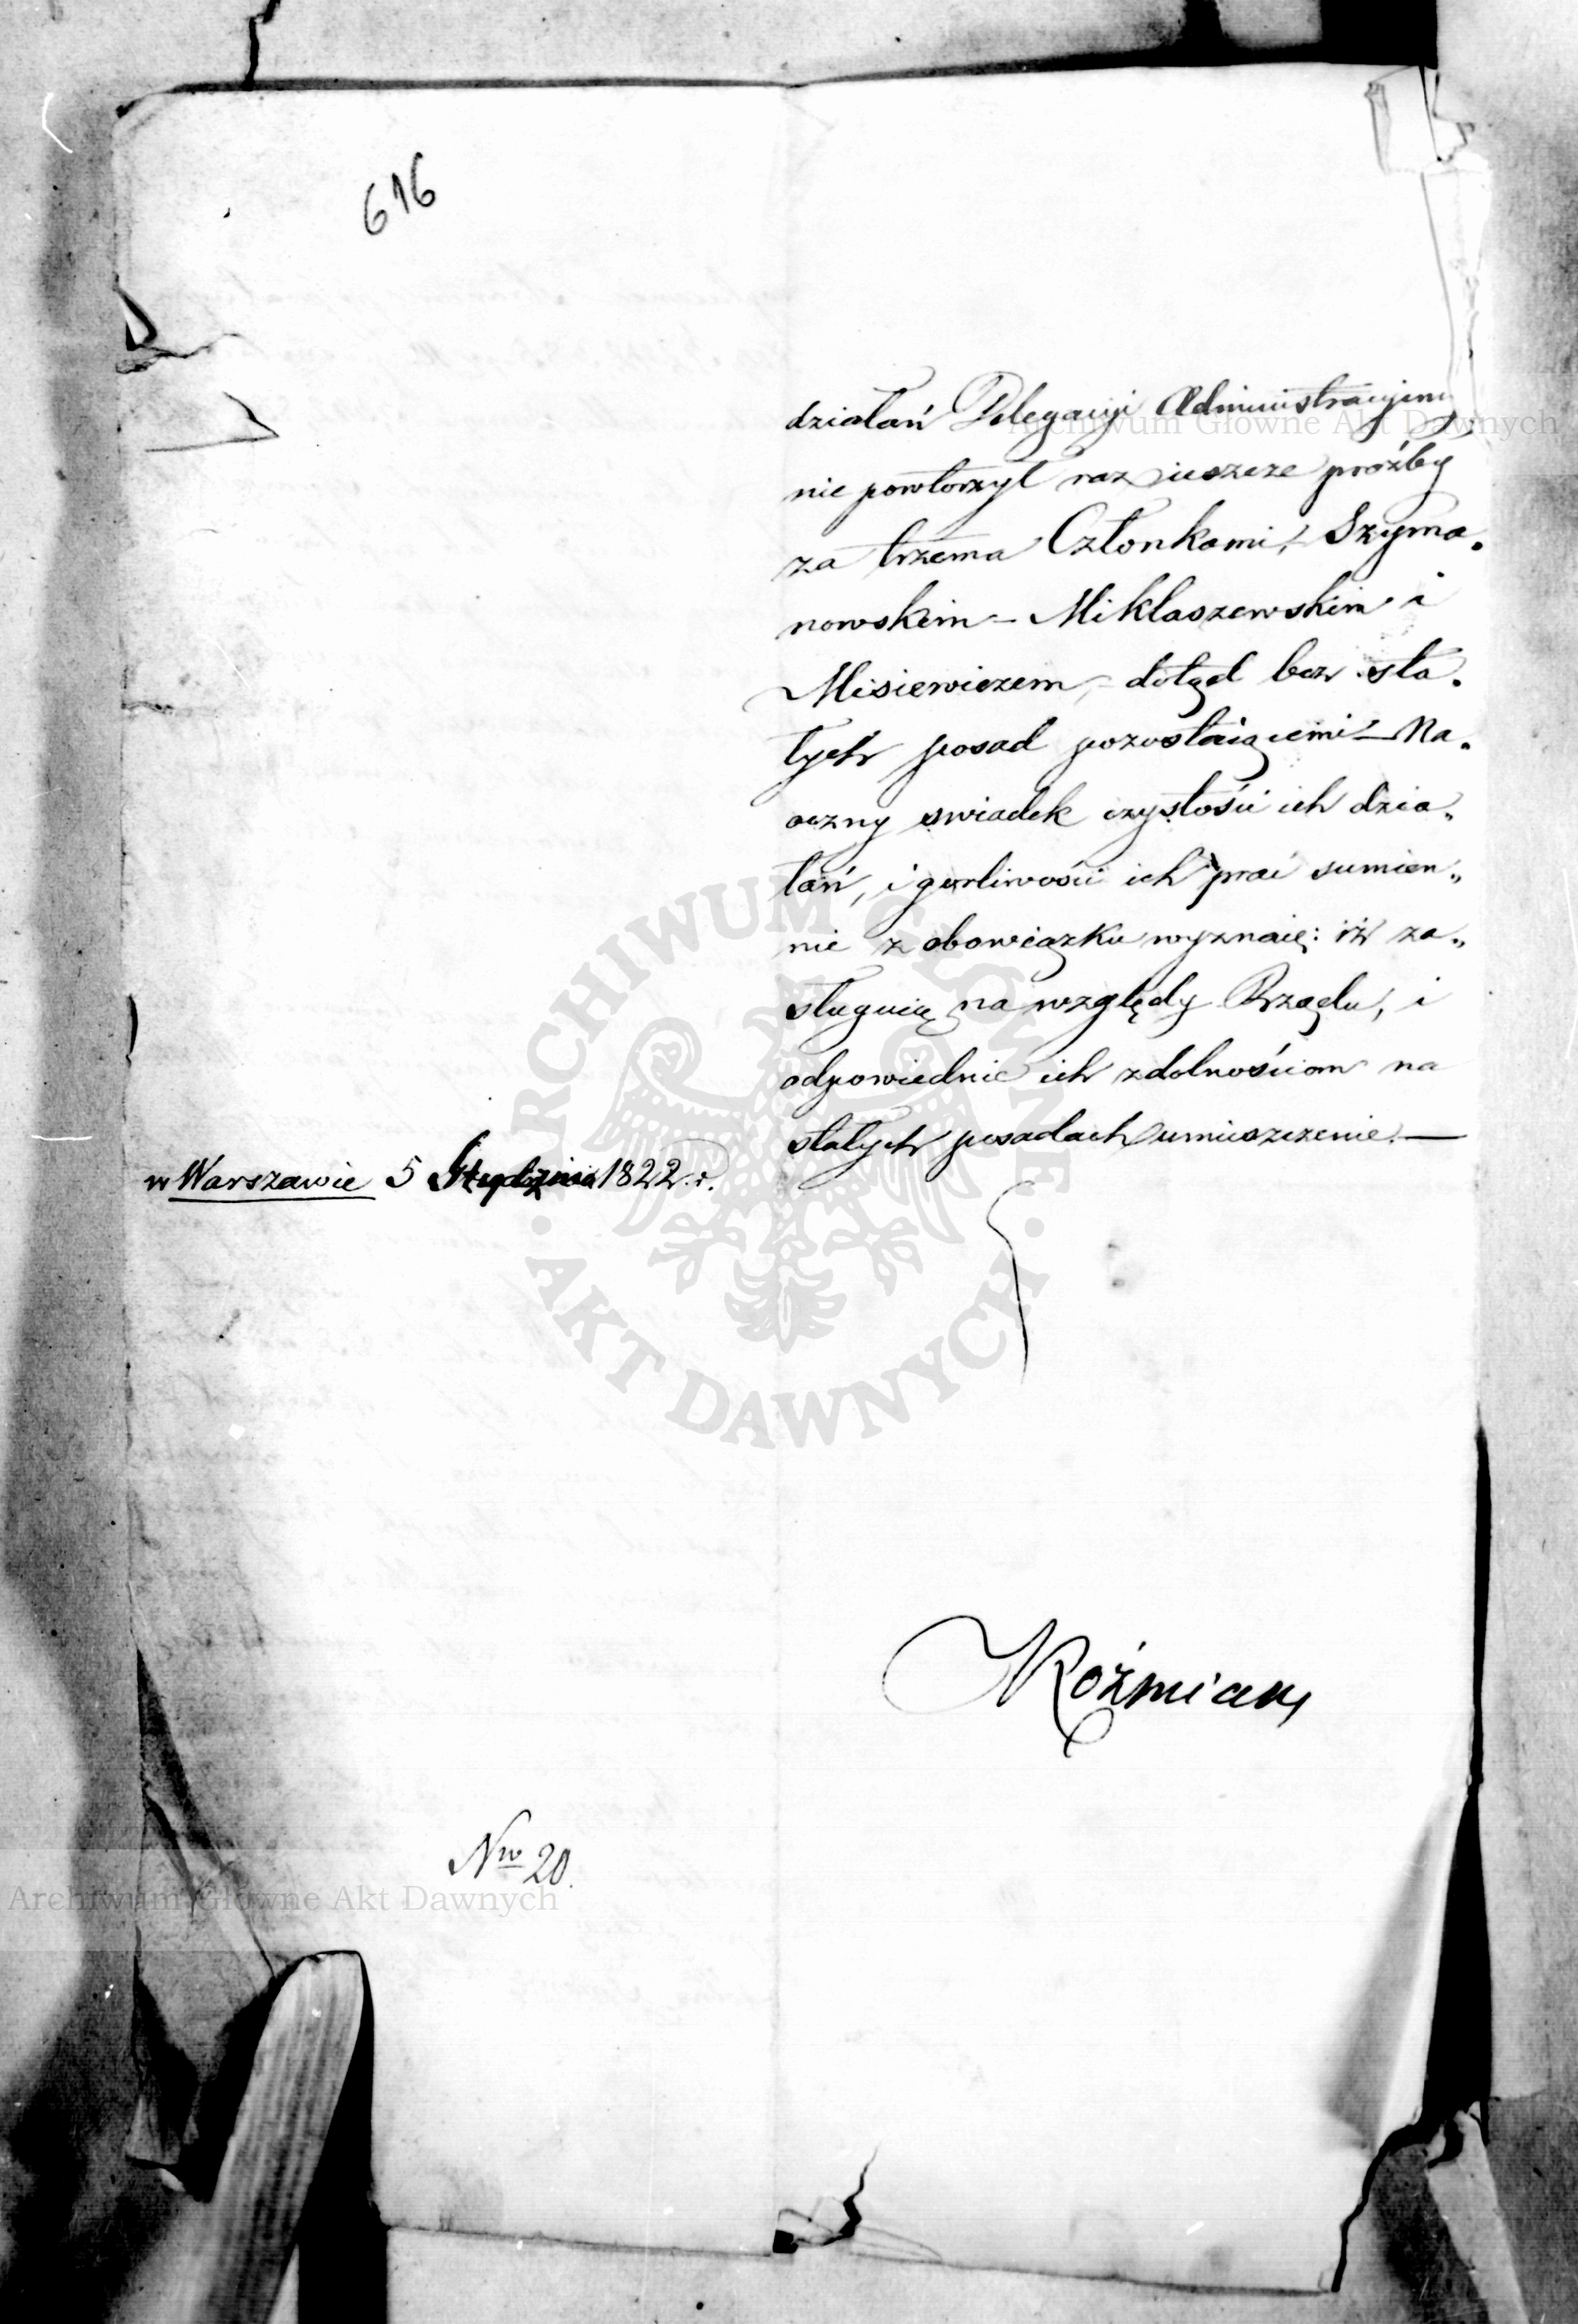 616
działań Delegacyi Administracyjney
nie powtorzył raz ieszcze proźby
za trzema Członkami, Szyma„
nowskim – Miklaszewskim i
Misiewiczem, – dotąd bez sta„
łych posad pozostaiącemi – Na„
oczny swiadek czystości ich dzia„
łań, i gorliwości ich prac sumien„
nie z obowiązku wyznaię: iż za„
sługuią na względy Rządu, i
odpowiednie ich zdolnościom na
stałych posadach umieszczenie. —
w Warszawie 5 Stycznia 1822. r.
Koźmian
Nro 20.
Archiwum Główne Akt Dawnych
Archiwum Główne Akt Dawnych
ARCHIWUM GŁÓWNE
AKT DAWNYCH